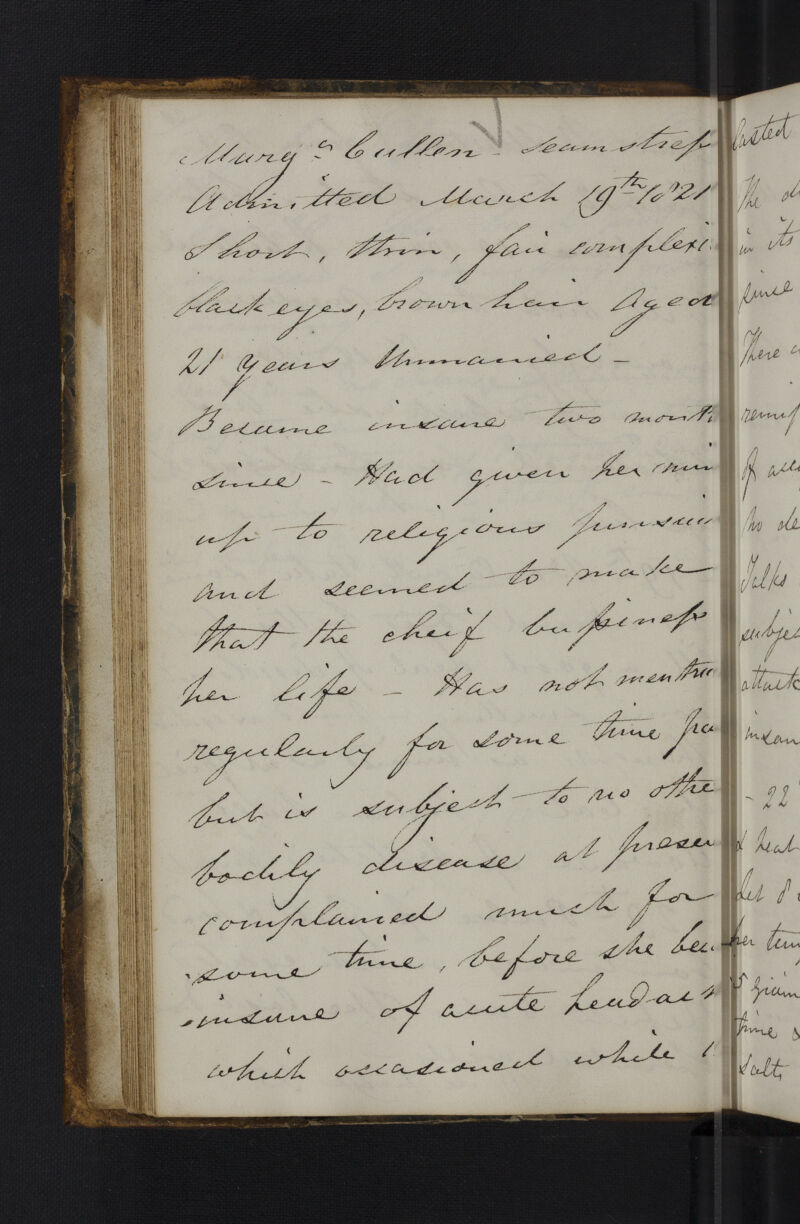 Marg.a Cullen - Seamstress
Admitted March 19th 1821
Short, thin, fair complexi
black eyes, brown hair Aged
21 years Unmarried -
Became insane two month
since - Had given her min
up to religious
and seemed to make
that the cheif bussiness
her life - Has not menstru
regularly for some time pa
but is subject to no othe
bodily disease at presen
complained much for
some time, before she bec
insane of acute headach
which occasioned while
lasted
The
in its
since
There
of
no de
Talks
subjec
attack
insan
- 22
& heat
her
5
time &
Salts